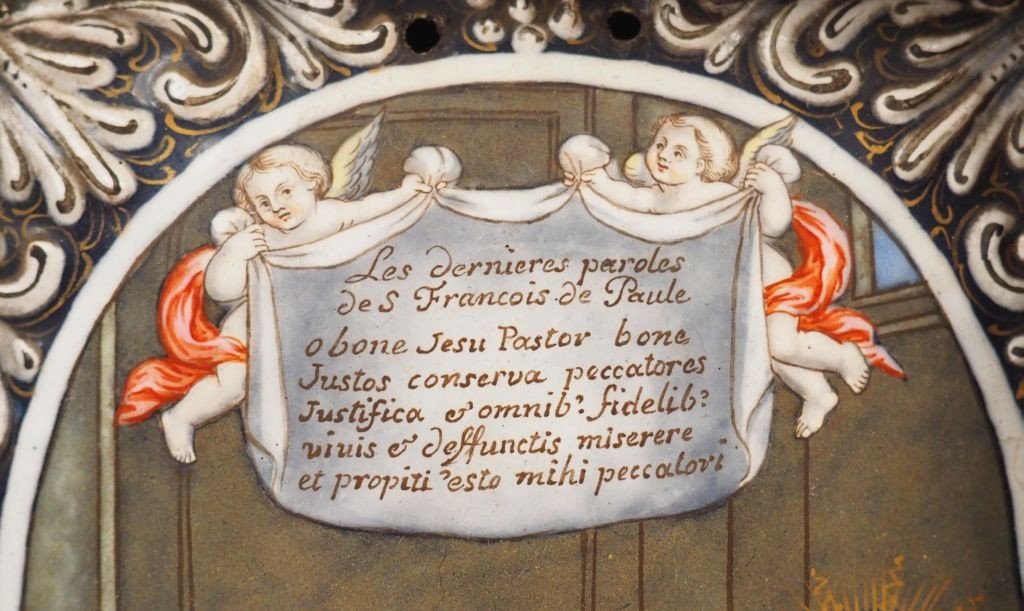 Les dernieres paroles
de S Francois de Paule
o bone Jesu Pastor bone
Justos conserva peccatores
Justifica & omnib? fidelib?
vivis & deffunctis miserere
et propiti ?esto mihi peccatori